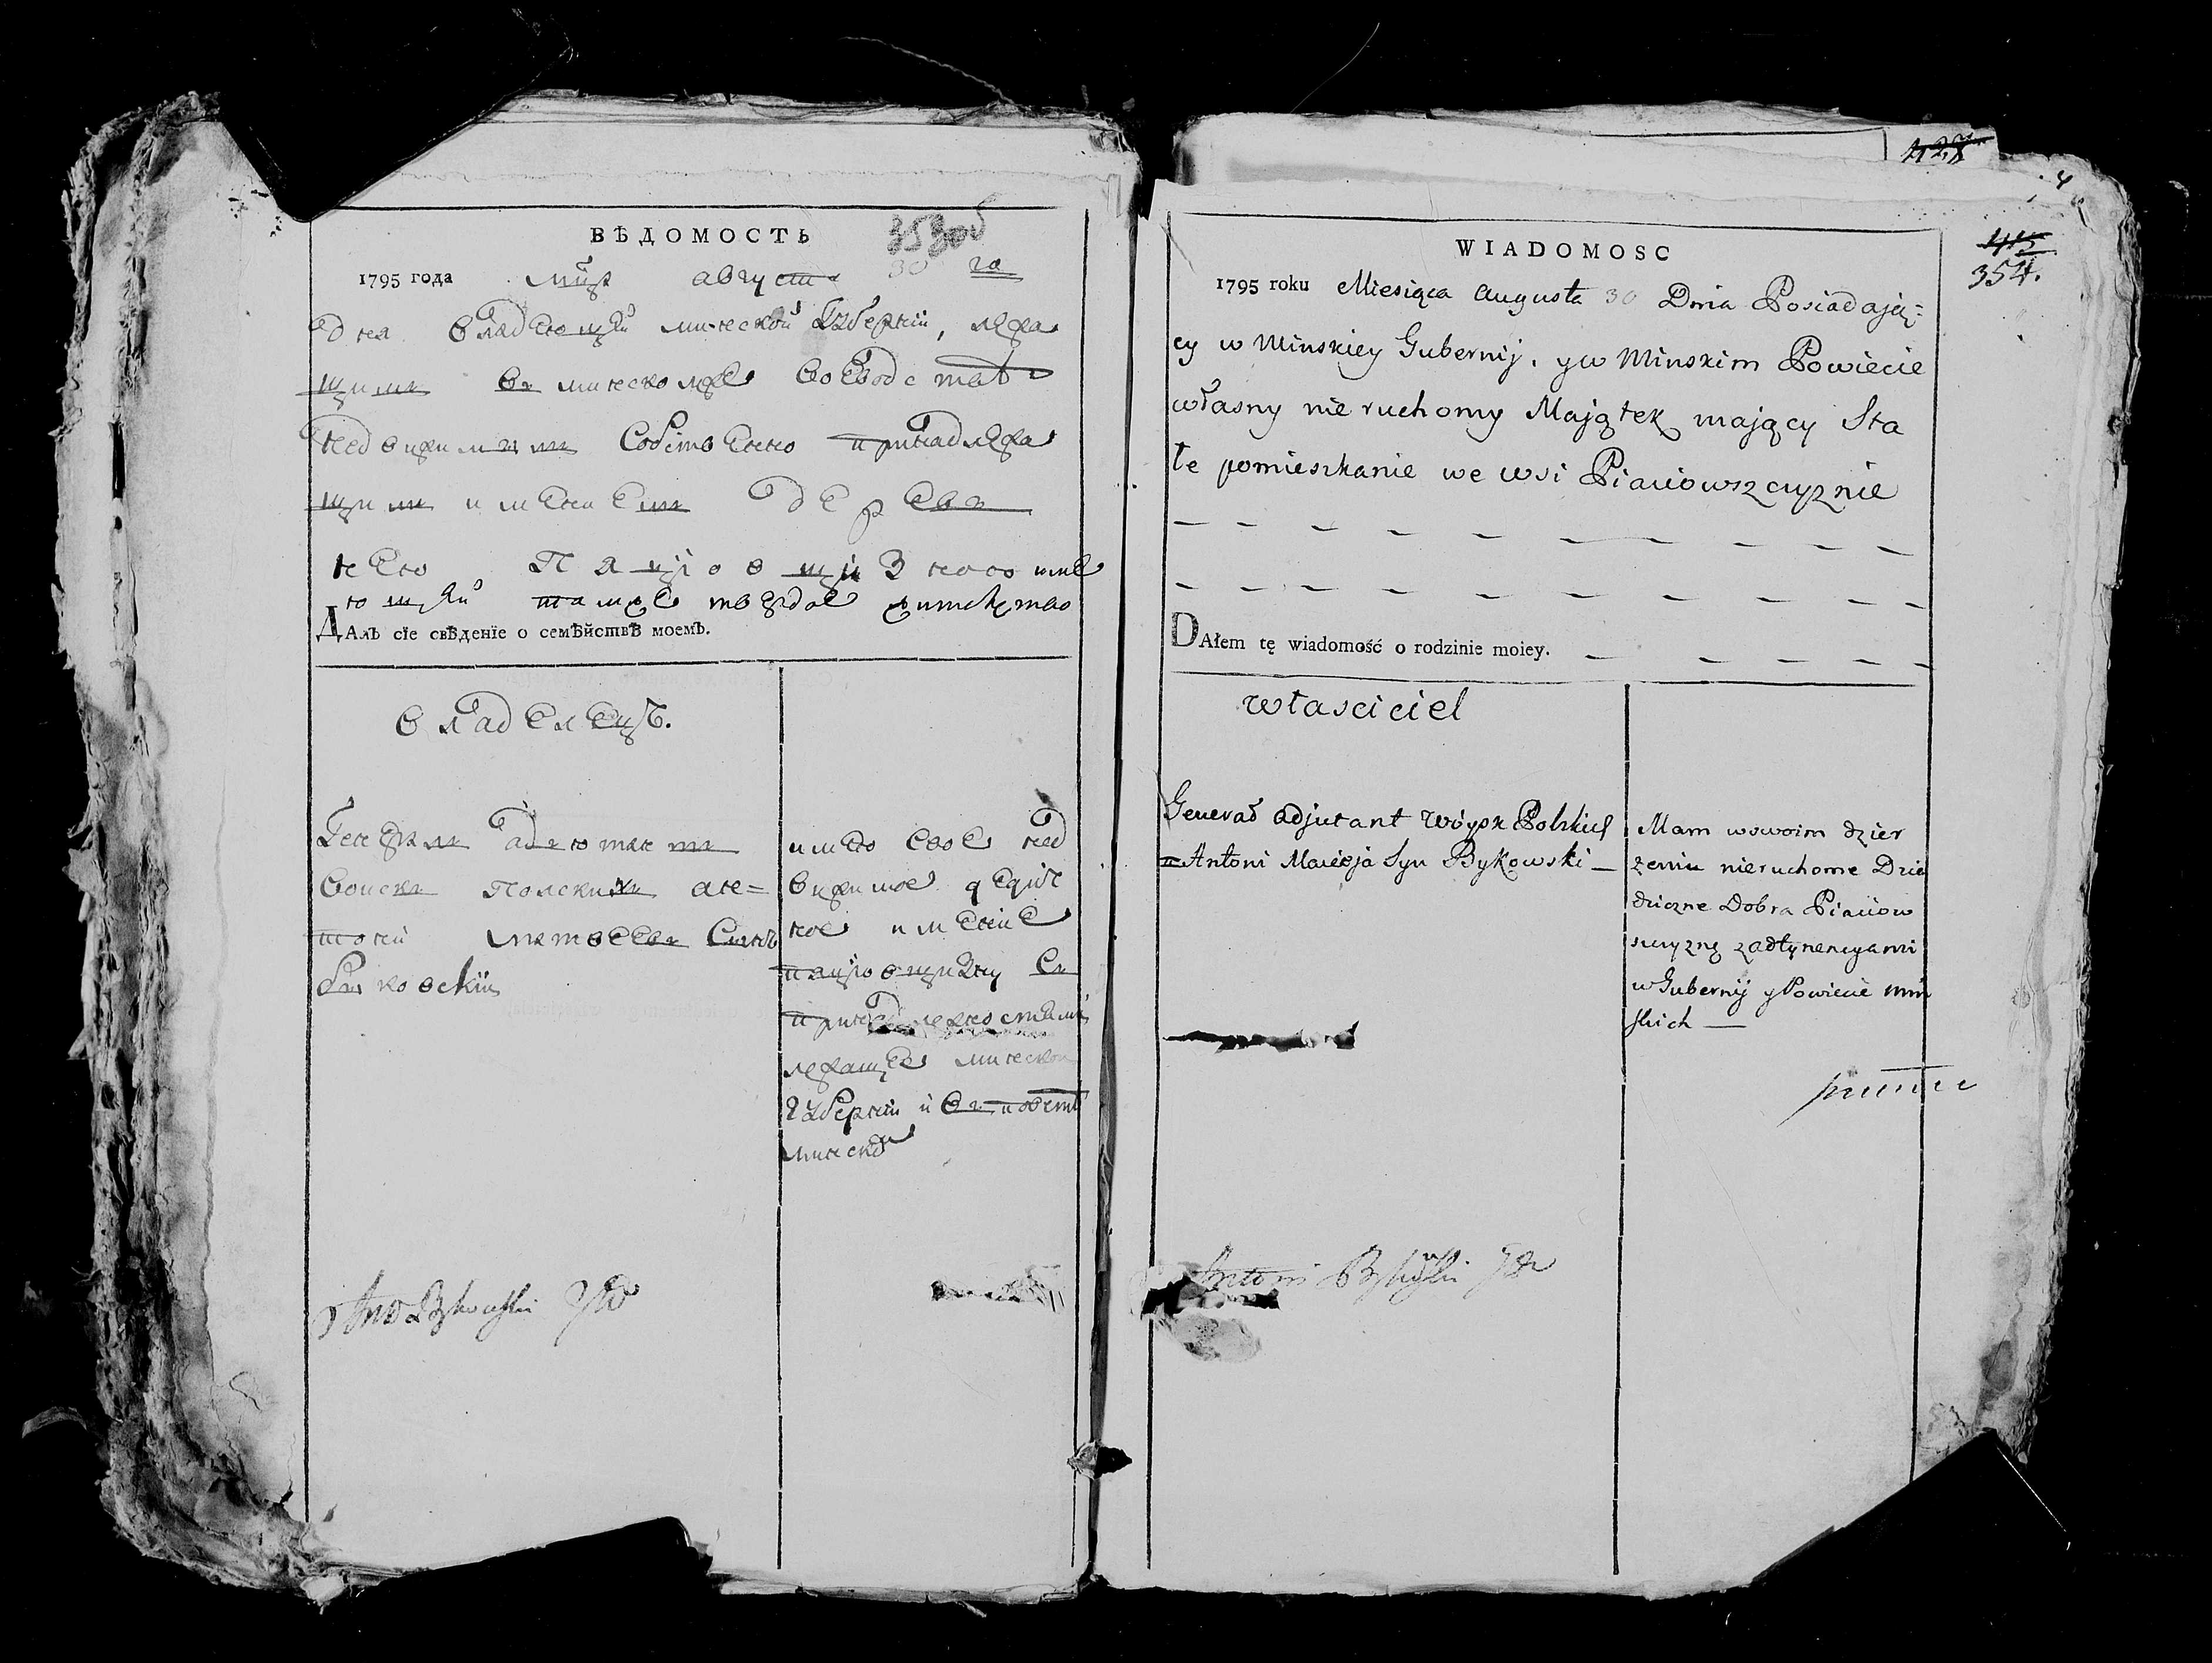 ВѢДОМОСТЬ
353об
1795 года мца августа 30 го
дня владеющей минской губерніи, лежа
щимъ въ минскомже воеводствѣ
недвижимымъ собственно принадлежа
щимъ имениемъ деревъ
нею Пяцiовщизною име
ющей тамже твердое жителство
ДАлъ сїе свѣденїе о семѣйствѣ моемъ.
владелецъ.
Генералъ адъютантъ
войскъ полскихъ ан=
тоней матвеевъ сынъ
быковскiй
имею свое нед
вижимое дедич
ное имение
пяцiовщизну съ
принадлежностями
лежащее минской
губерніи и въ повете
минском
Ant Bykowski
WIADOMOSC
1795 roku Miesiąca Augusta 30 Dnia Posiadają=
cy w Minskiey Gubernij, y w Minskim Powiecie
własny nieruchomy Majątek mający Sta
łe pomieszkanie we wsi Piaciowszczyznie
DAłem tę wiadomość o rodzinie moiey.
własciciel
Generał adjutant Woysk Polskich
Antoni Macieja Syn Bykowski
Mam w swoim dzier
żeniu nieruchome Dzie
dziczne Dobra Piaciow
szczyznę z adtynencyami
w Gubernij y Powiecie min
skich
Antoni Bykowski
427
4
415
354.